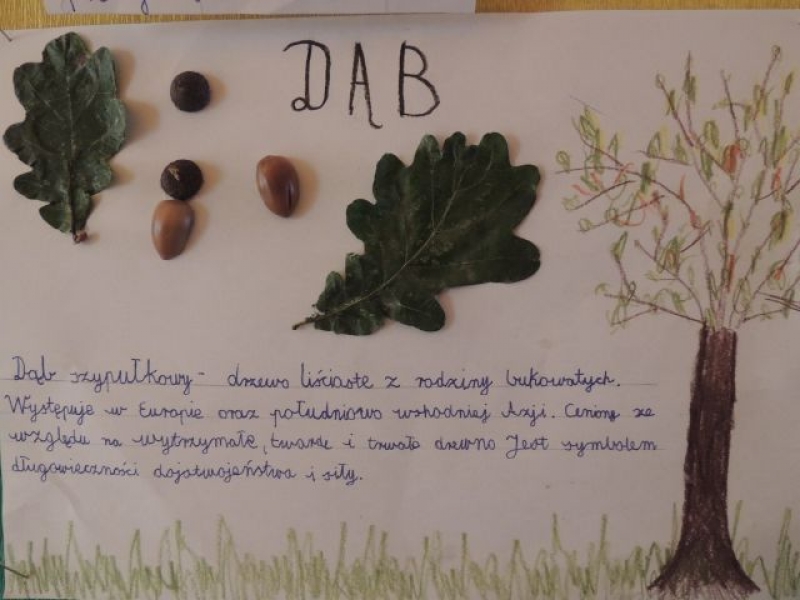 DĄB
Dąb szypułkowy - drzewo liściaste z rodziny bukowatych.
Występuje w Europie oraz południowo wschodniej Azji. Cenione ze
względu na wytrzymałe, twarde i trwałe drewno Jest symbolem
długowieczności dojstwojeństwa i siły.